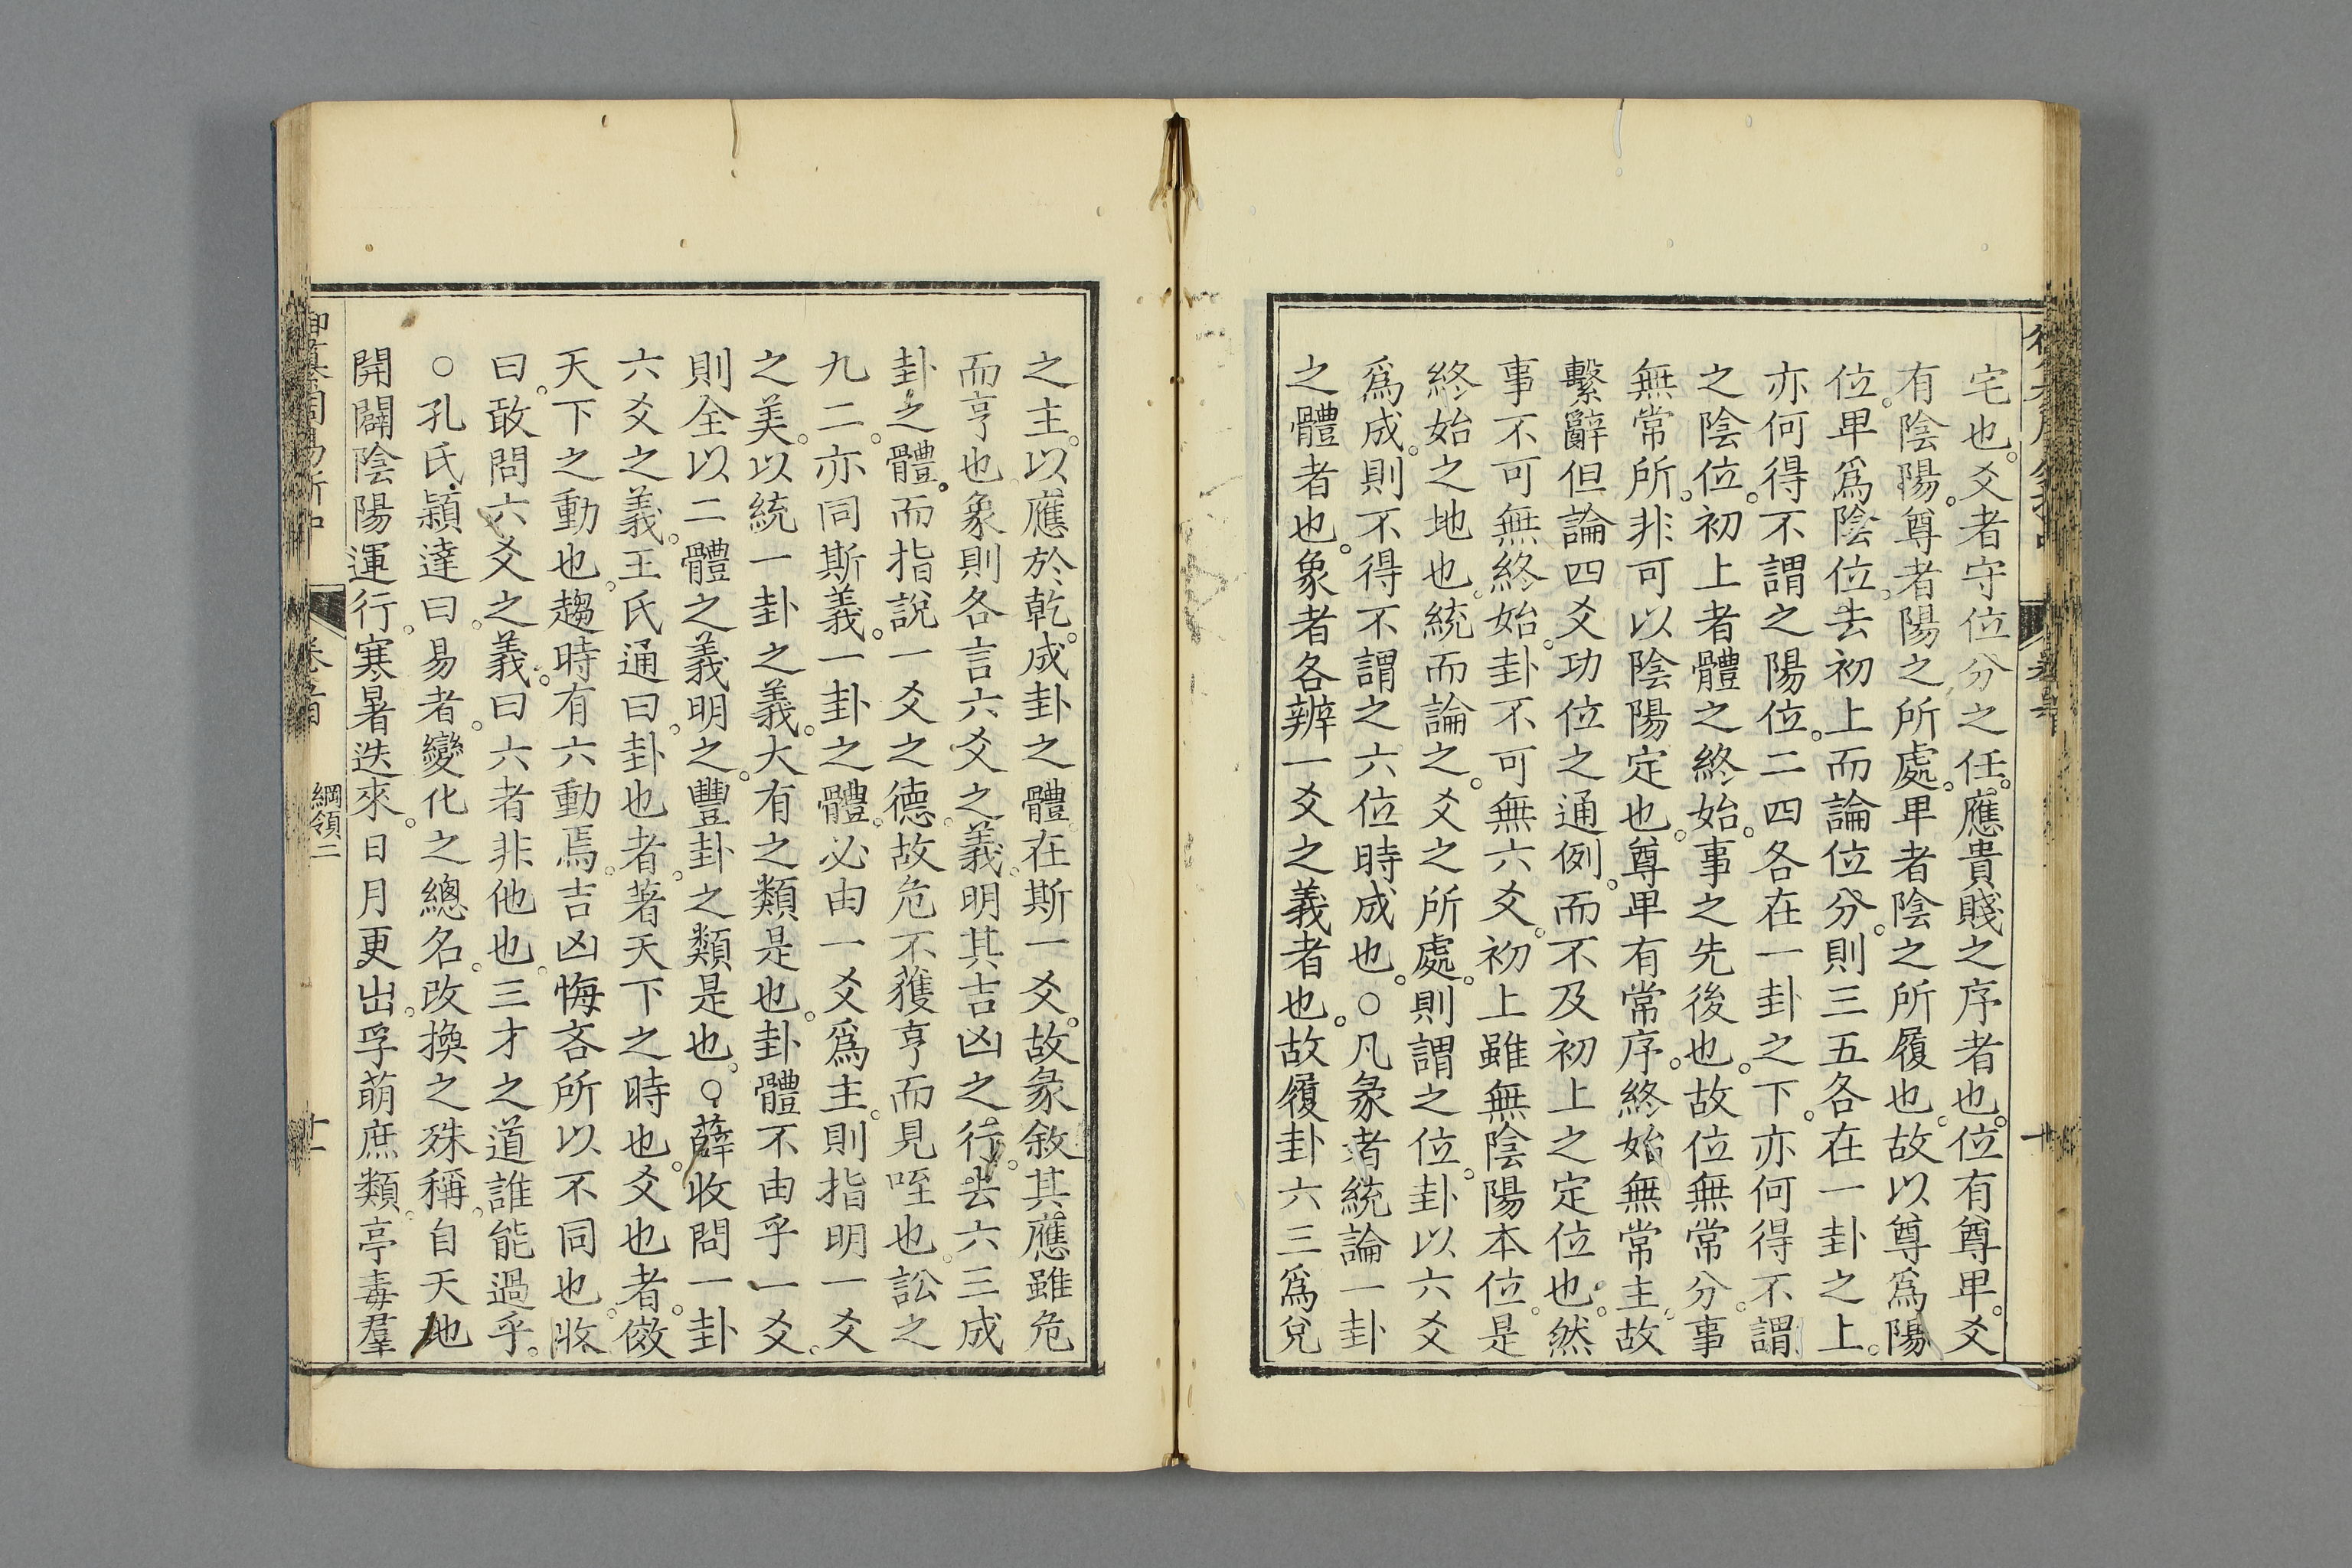 宅也。爻者守位分之任。應貴賤之序者也。位有尊卑。爻
有陰陽。尊者陽之所處。卑者陰之所履也。故以尊爲陽
位。卑爲陰位。去初上而論位分。則三五各在一卦之上。
亦何得不謂之陽位。二四各在一卦之下。亦何得不謂
之陰位。初上者體之終始。事之先後也。故位無常分。事
無常所。非可以陰陽定也。尊卑有常序。終始無常主。故
繫辭但論四爻功位之通例。而不及初上之定位也。然
事不可無終始。卦不可無六爻。初上雖無陰陽本位。是
終始之地也。統而論之。爻之所處。則謂之位。卦以六爻
爲成。則不得不謂之六位時成也。○凡彖者統論一卦
之體者也。象者各辨一爻之義者也。故履卦六三爲兌
之主。以應於乾。成卦之體。在斯一爻。故彖敘其應雖危
而亨也。象則各言六爻之義。明其吉凶之行。去六三成
卦之體。而指說一爻之德。故危不獲亨而見咥也。訟之
九二。亦同斯義。一卦之體。必由一爻爲主。則指明一爻
之美。以統一卦之義。大有之類是也。卦體不由乎一爻。
則全以二體之義明之。豐卦之類是也。○薛收問一卦
六爻之義。王氏通曰。卦也者。著天下之時也。爻也者。傚
天下之動也。趨時有六動焉。吉凶悔吝所以不同也。收
曰。敢問六爻之義。曰。六者非他也。三才之道誰能過乎。
○孔氏穎達曰。易者。變化之總名。改換之殊稱。自天地
開闢陰陽運行。寒暑迭來。日月更出。孚萌庶類。亭毒羣
卷首
綱領二
十一